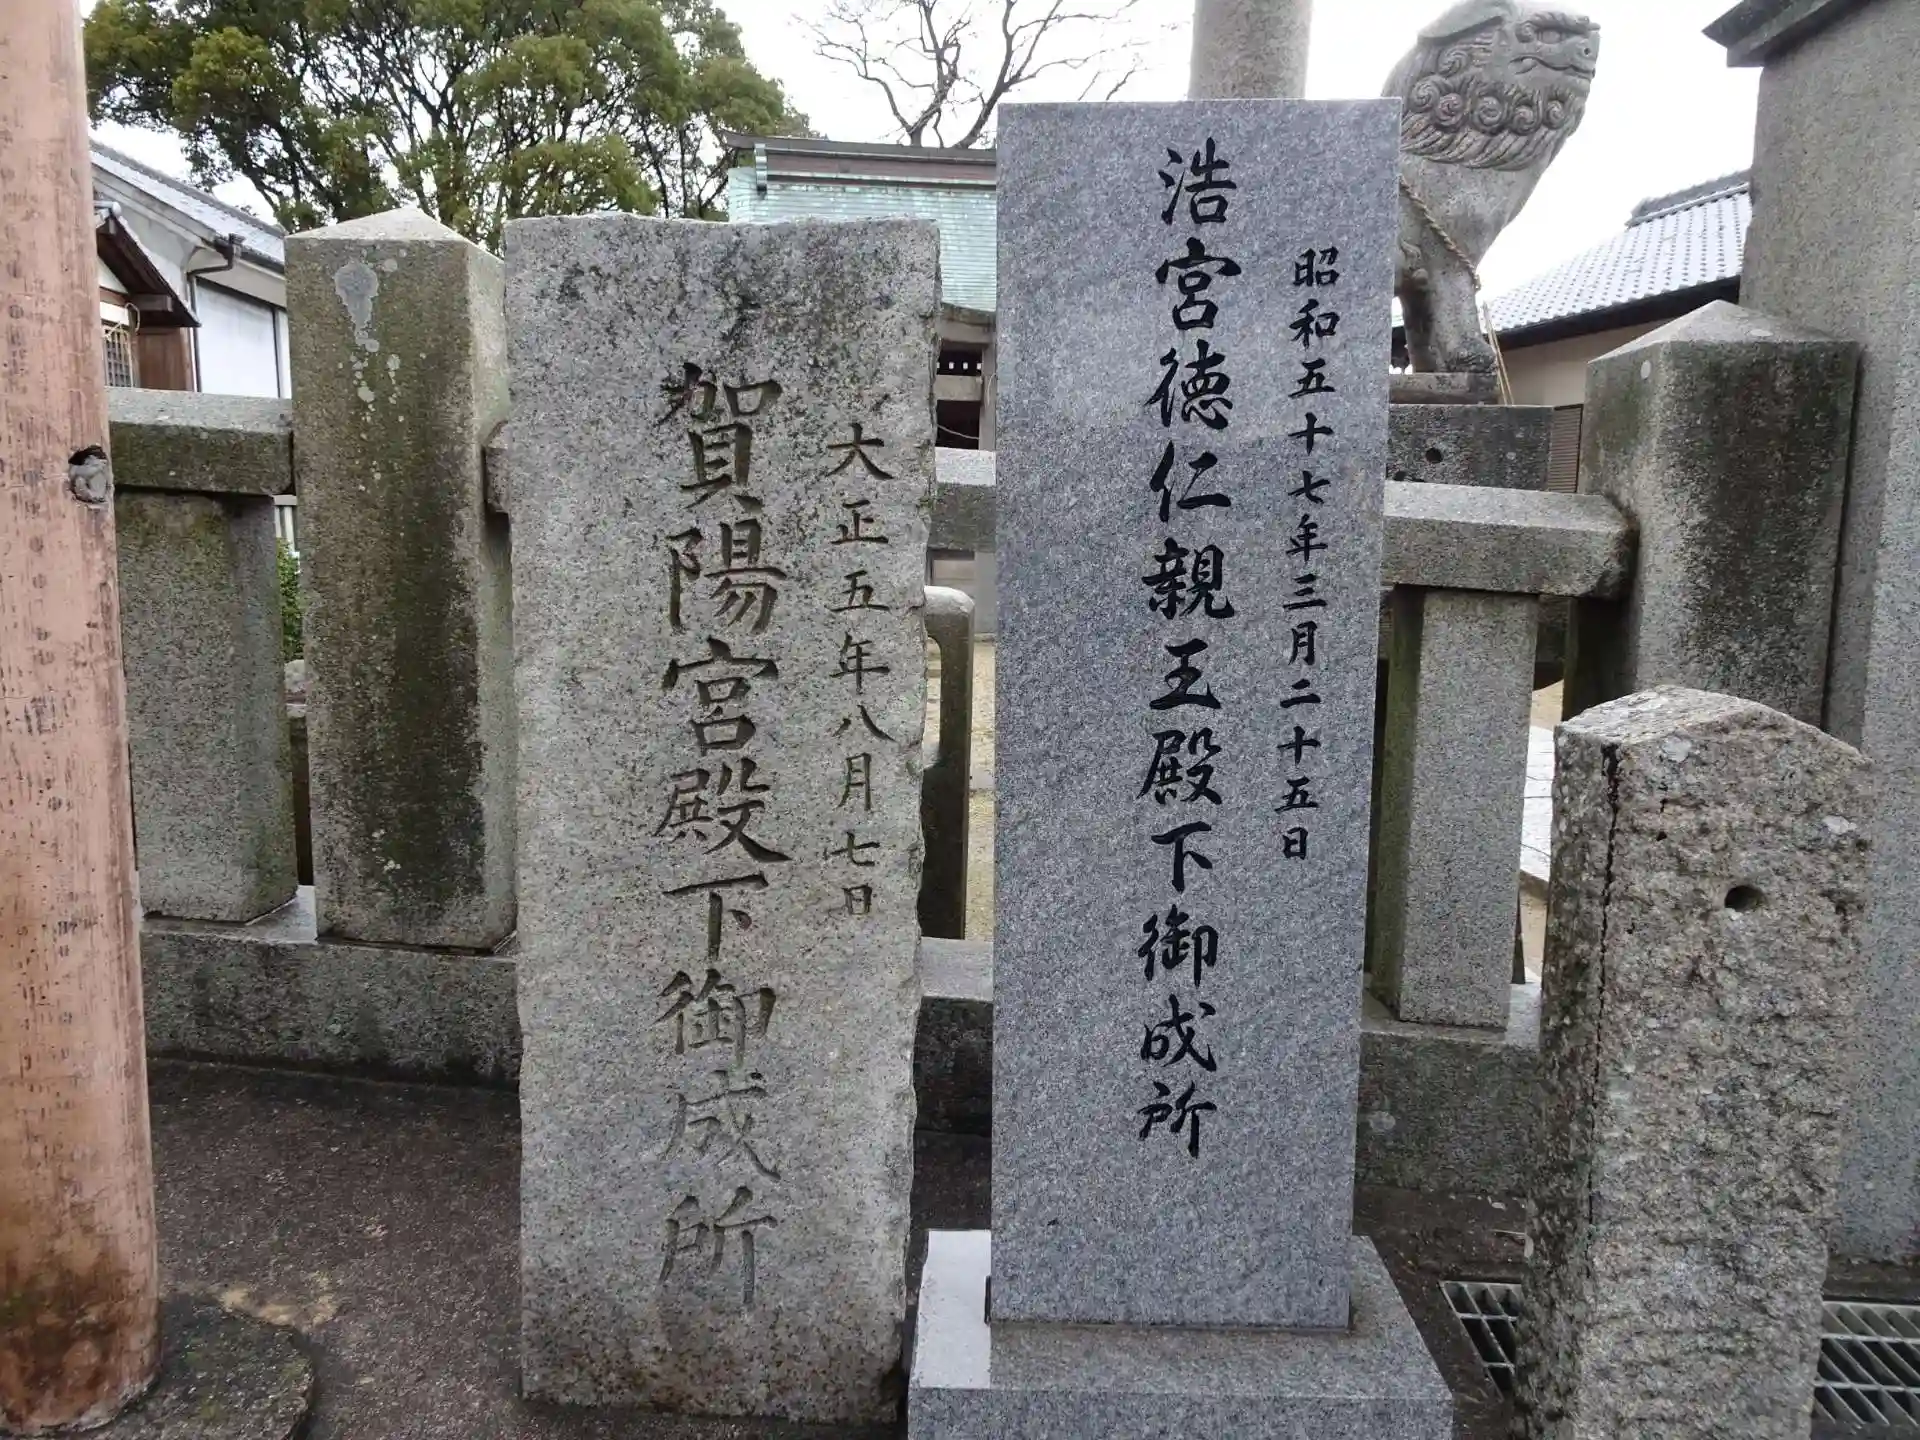 昭和五十七年三月二十五日
浩宮徳仁親王殿下御成所
大正五年八月七日
賀陽宮殿下御成所